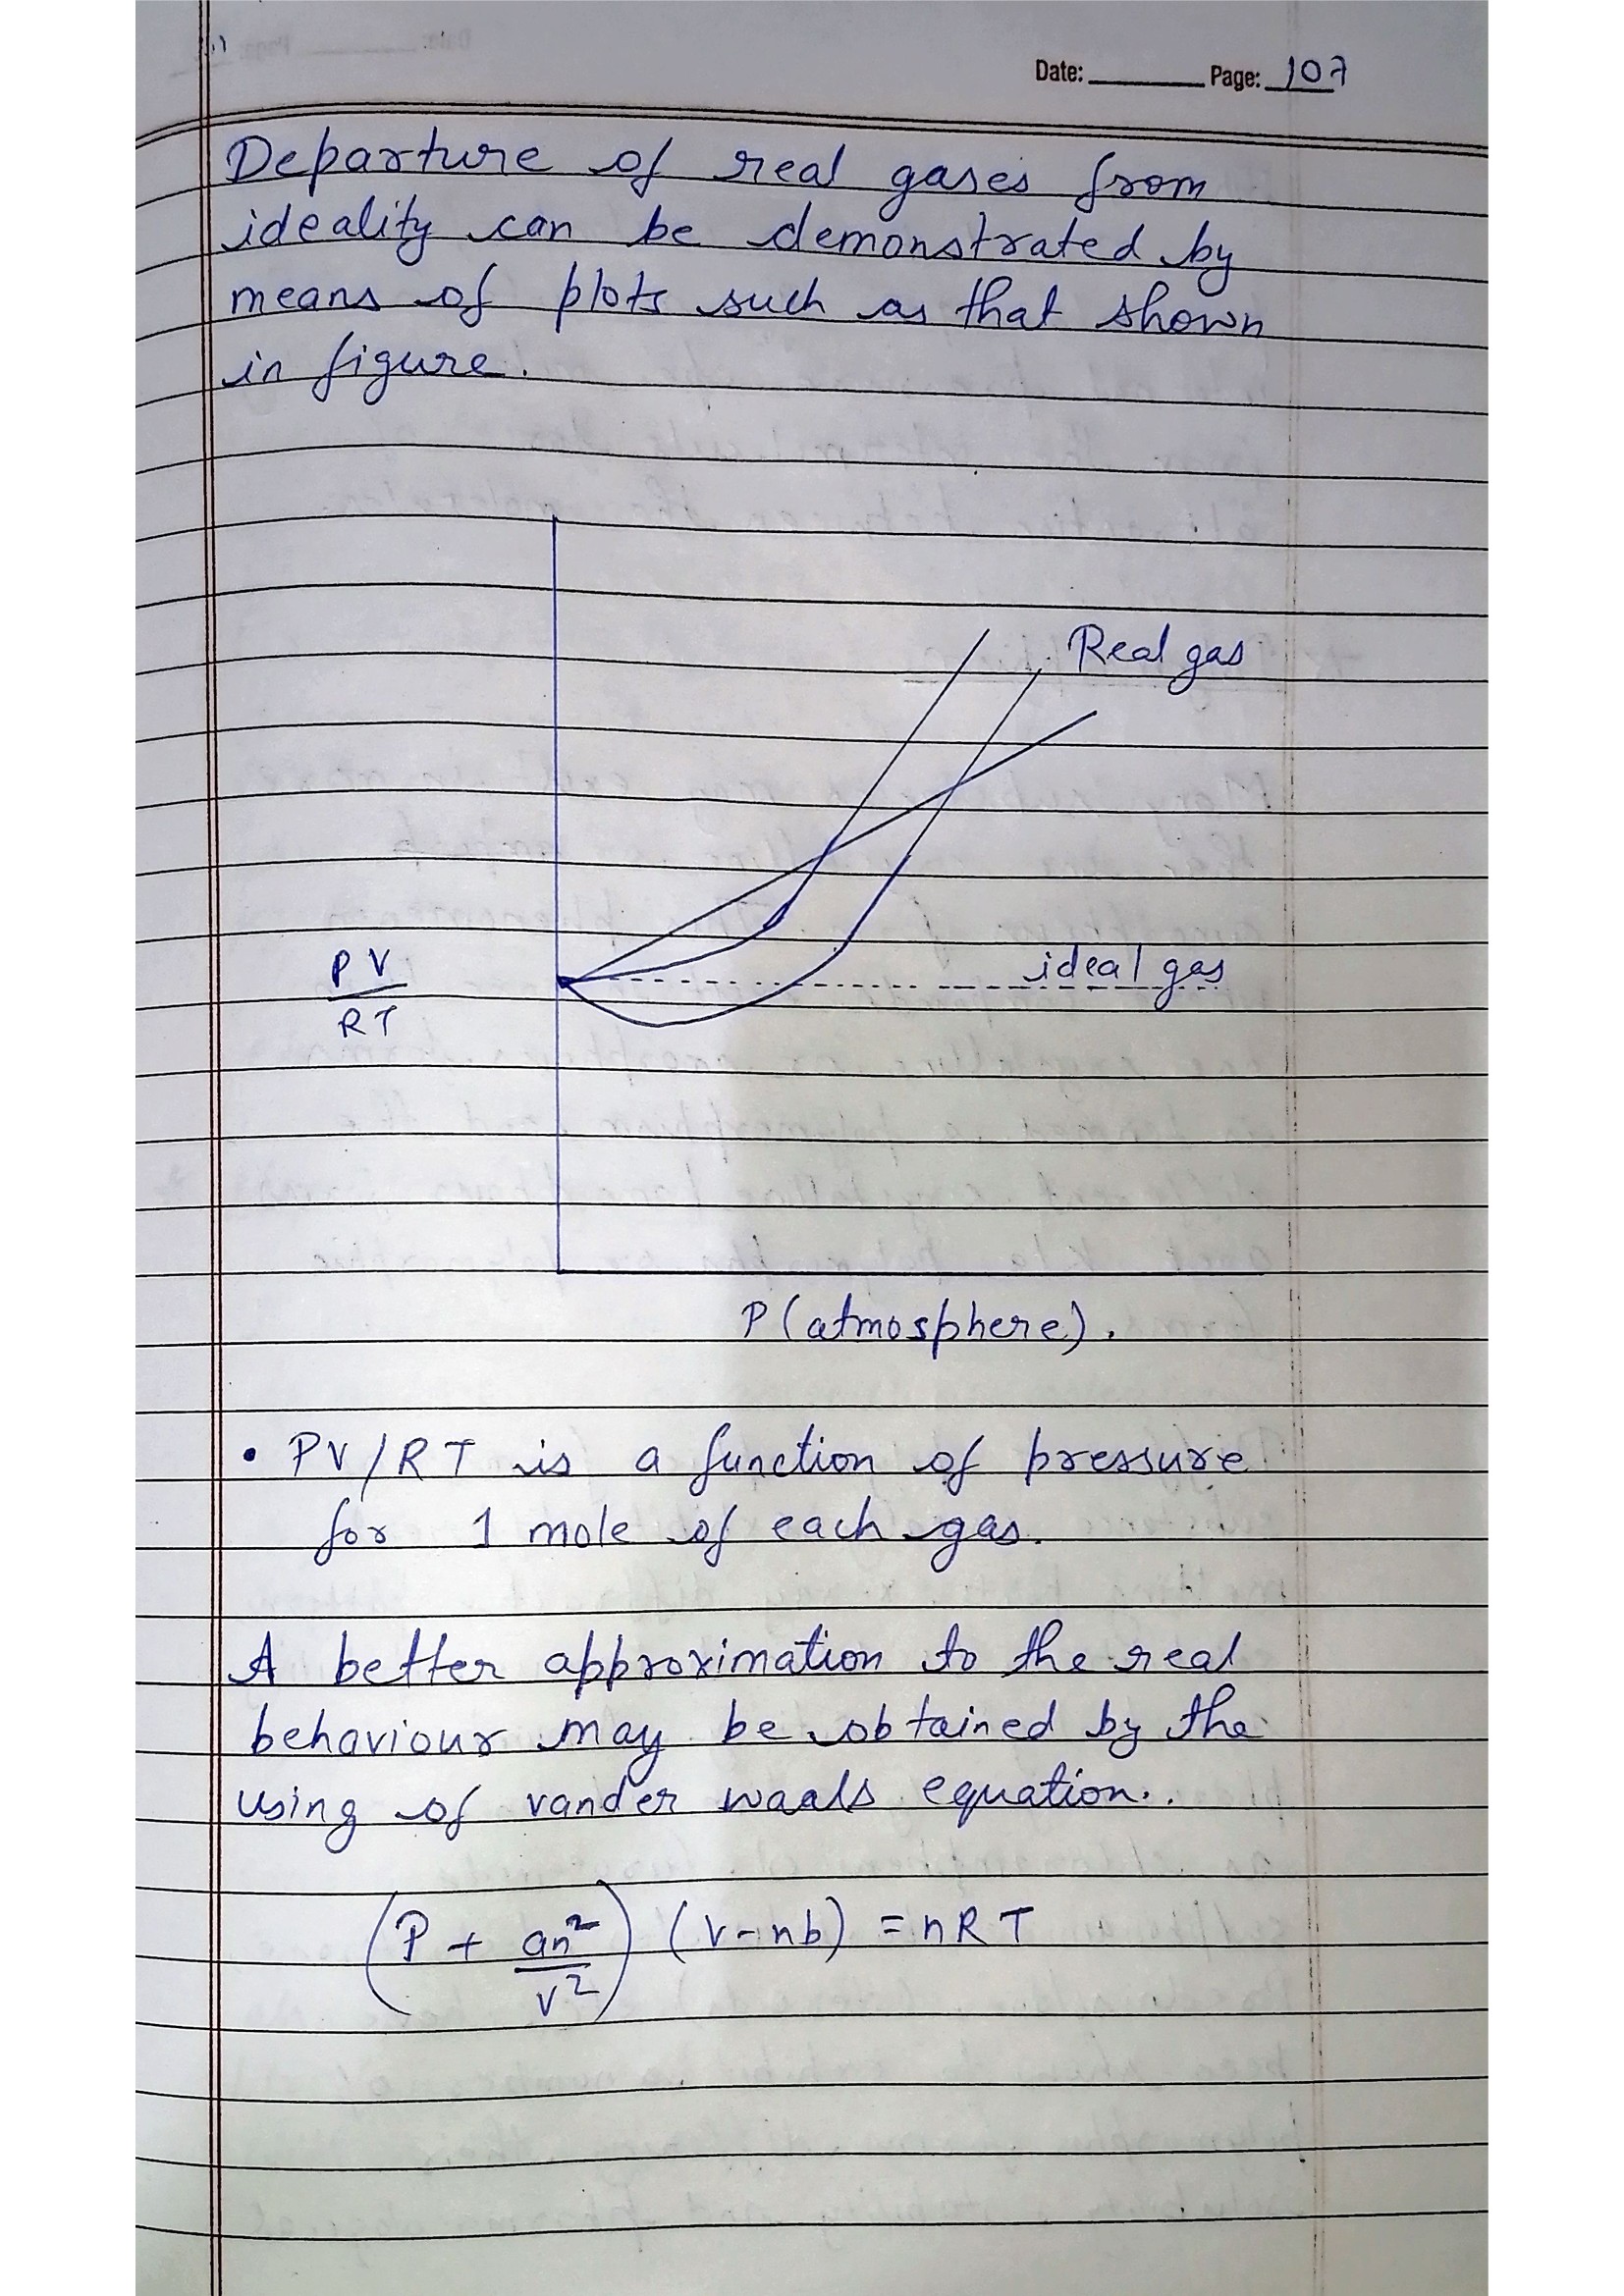 Date: Page: 107
Departure of real gases from
ideality can be demonstrated by
means of plots such as that shown
in figure.
Real gas
ideal gas
PV
RT
P (atmosphere).
• PV/RT is a function of pressure
for 1 mole of each gas.
A better approximation to the real
behaviour may be obtained by the
using of vander waals equation..
(P + an²/v²) (v-nb) = nRT